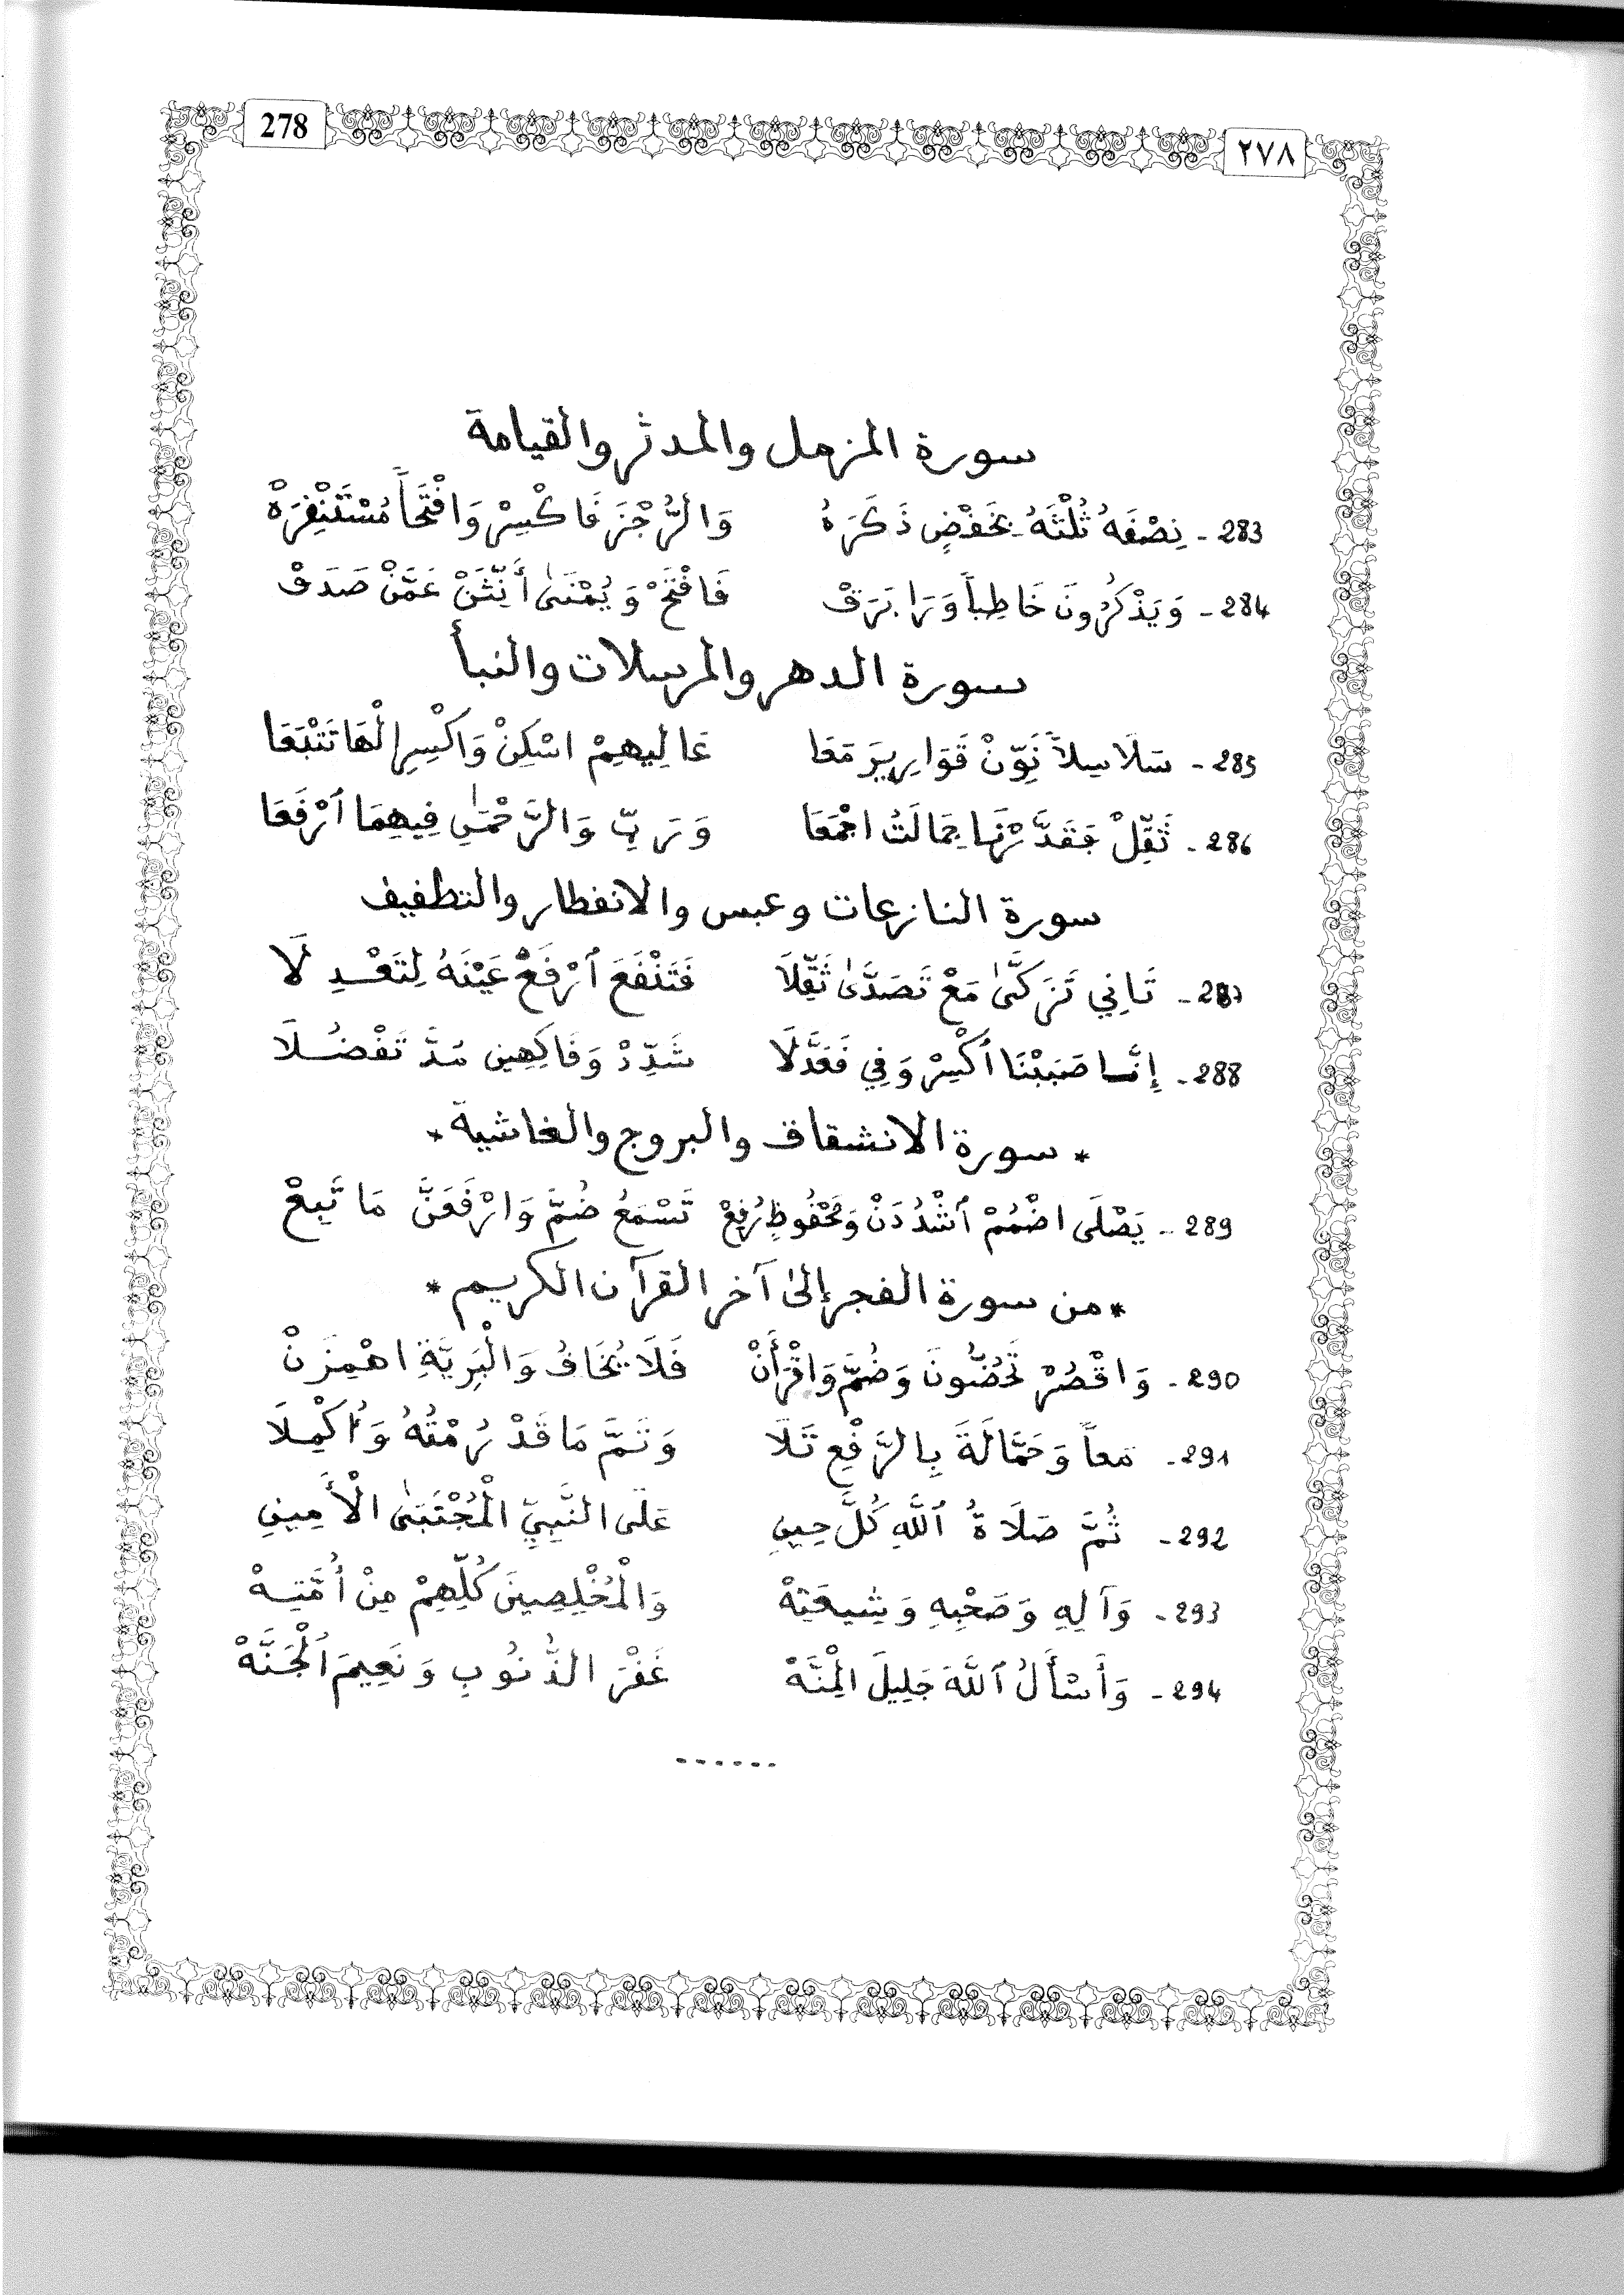 278
٢٧٨
سورة المزمل والمدثر والقيامة
283 - نِصْفَهُ ثُلْثَهُ بِخَفْضٍ ذَكَرَهُ وَالرُّجْزَ فَاكْسِرْ وَافْتَحَاً مُسْتَنْفِرَهْ
284 - وَيَذْكُرُونَ خَاطِباً وَرَا بَرَقْ فَافْتَحْ وَيُمْنَىٰ أَنِّثَنْ عَمَّنْ صَدَقْ
سورة الدهر والمرسلات والنبأ
285 - سَلَاسِلاً نَوِّنْ قَوَارِيرَ مَعَا عَالِيهِمْ اسْكِنْ وَاكْسِرِ الْهَا تَتْبَعَا
286 - ثَقِّلْ فَقَدَّرْنَا جِمَالَتُ اجْمَعَا وَرَبِّ وَالرَّحْمَٰنِ فِيهِمَا ٱرْفَعَا
سورة النازعات وعبس والانفطار والتطفيف
287 - ثَانِي تَزَكَّىٰ مَعْ تَصَدَّىٰ ثَقِّلَا فَتَنْفَعَ ٱرْفَعْ عَيْنَهُ لِتَعْدِلَا
288 - إِنَّا صَبَبْنَا ٱكْسِرْ وَفِي فَعَدَّلَا شَدِّدْ وَفَاكِهِينَ مُدَّ تَفْضُلَا
* سورة الانشقاق والبروج والغاشية *
289 - يَصْلَى اضْمُمْ ٱشْدُدَنْ وَمَحْفُوظٍ رُفِعْ تَسْمَعُ ضُمَّ وَارْفَعَنَّ مَا تَبِعْ
* من سورة الفجر إلىٰ آخر القرآن الكريم *
290 - وَاقْصُرْ تَحُضُّونَ وَضُمَّ وَاقْرَأَنْ فَلَا يَخَافُ وَالْبَرِيَّةِ اهْمِزَنْ
291 - مَعاً وَحَمَّالَةَ بِالرَّفْعِ تَلَا وَتَمَّ مَا قَدْ رُمْتُهُ وَأُكْمِلَا
292 - ثُمَّ صَلَاةُ ٱللَّهِ كُلَّ حِينِ عَلَى النَّبِيِّ الْمُجْتَبَىٰ الْأَمِينِ
293 - وَآلِهِ وَصَحْبِهِ وَشِيعَتِهْ وَالْمُخْلِصِينَ كُلِّهِمْ مِنْ أُمَّتِهْ
294 - وَأَسْأَلُ ٱللَّهَ جَلِيلَ الْمِنَّهْ غَفْرَ الذُّنُوبِ وَنَعِيمَ ٱلْجَنَّهْ
------